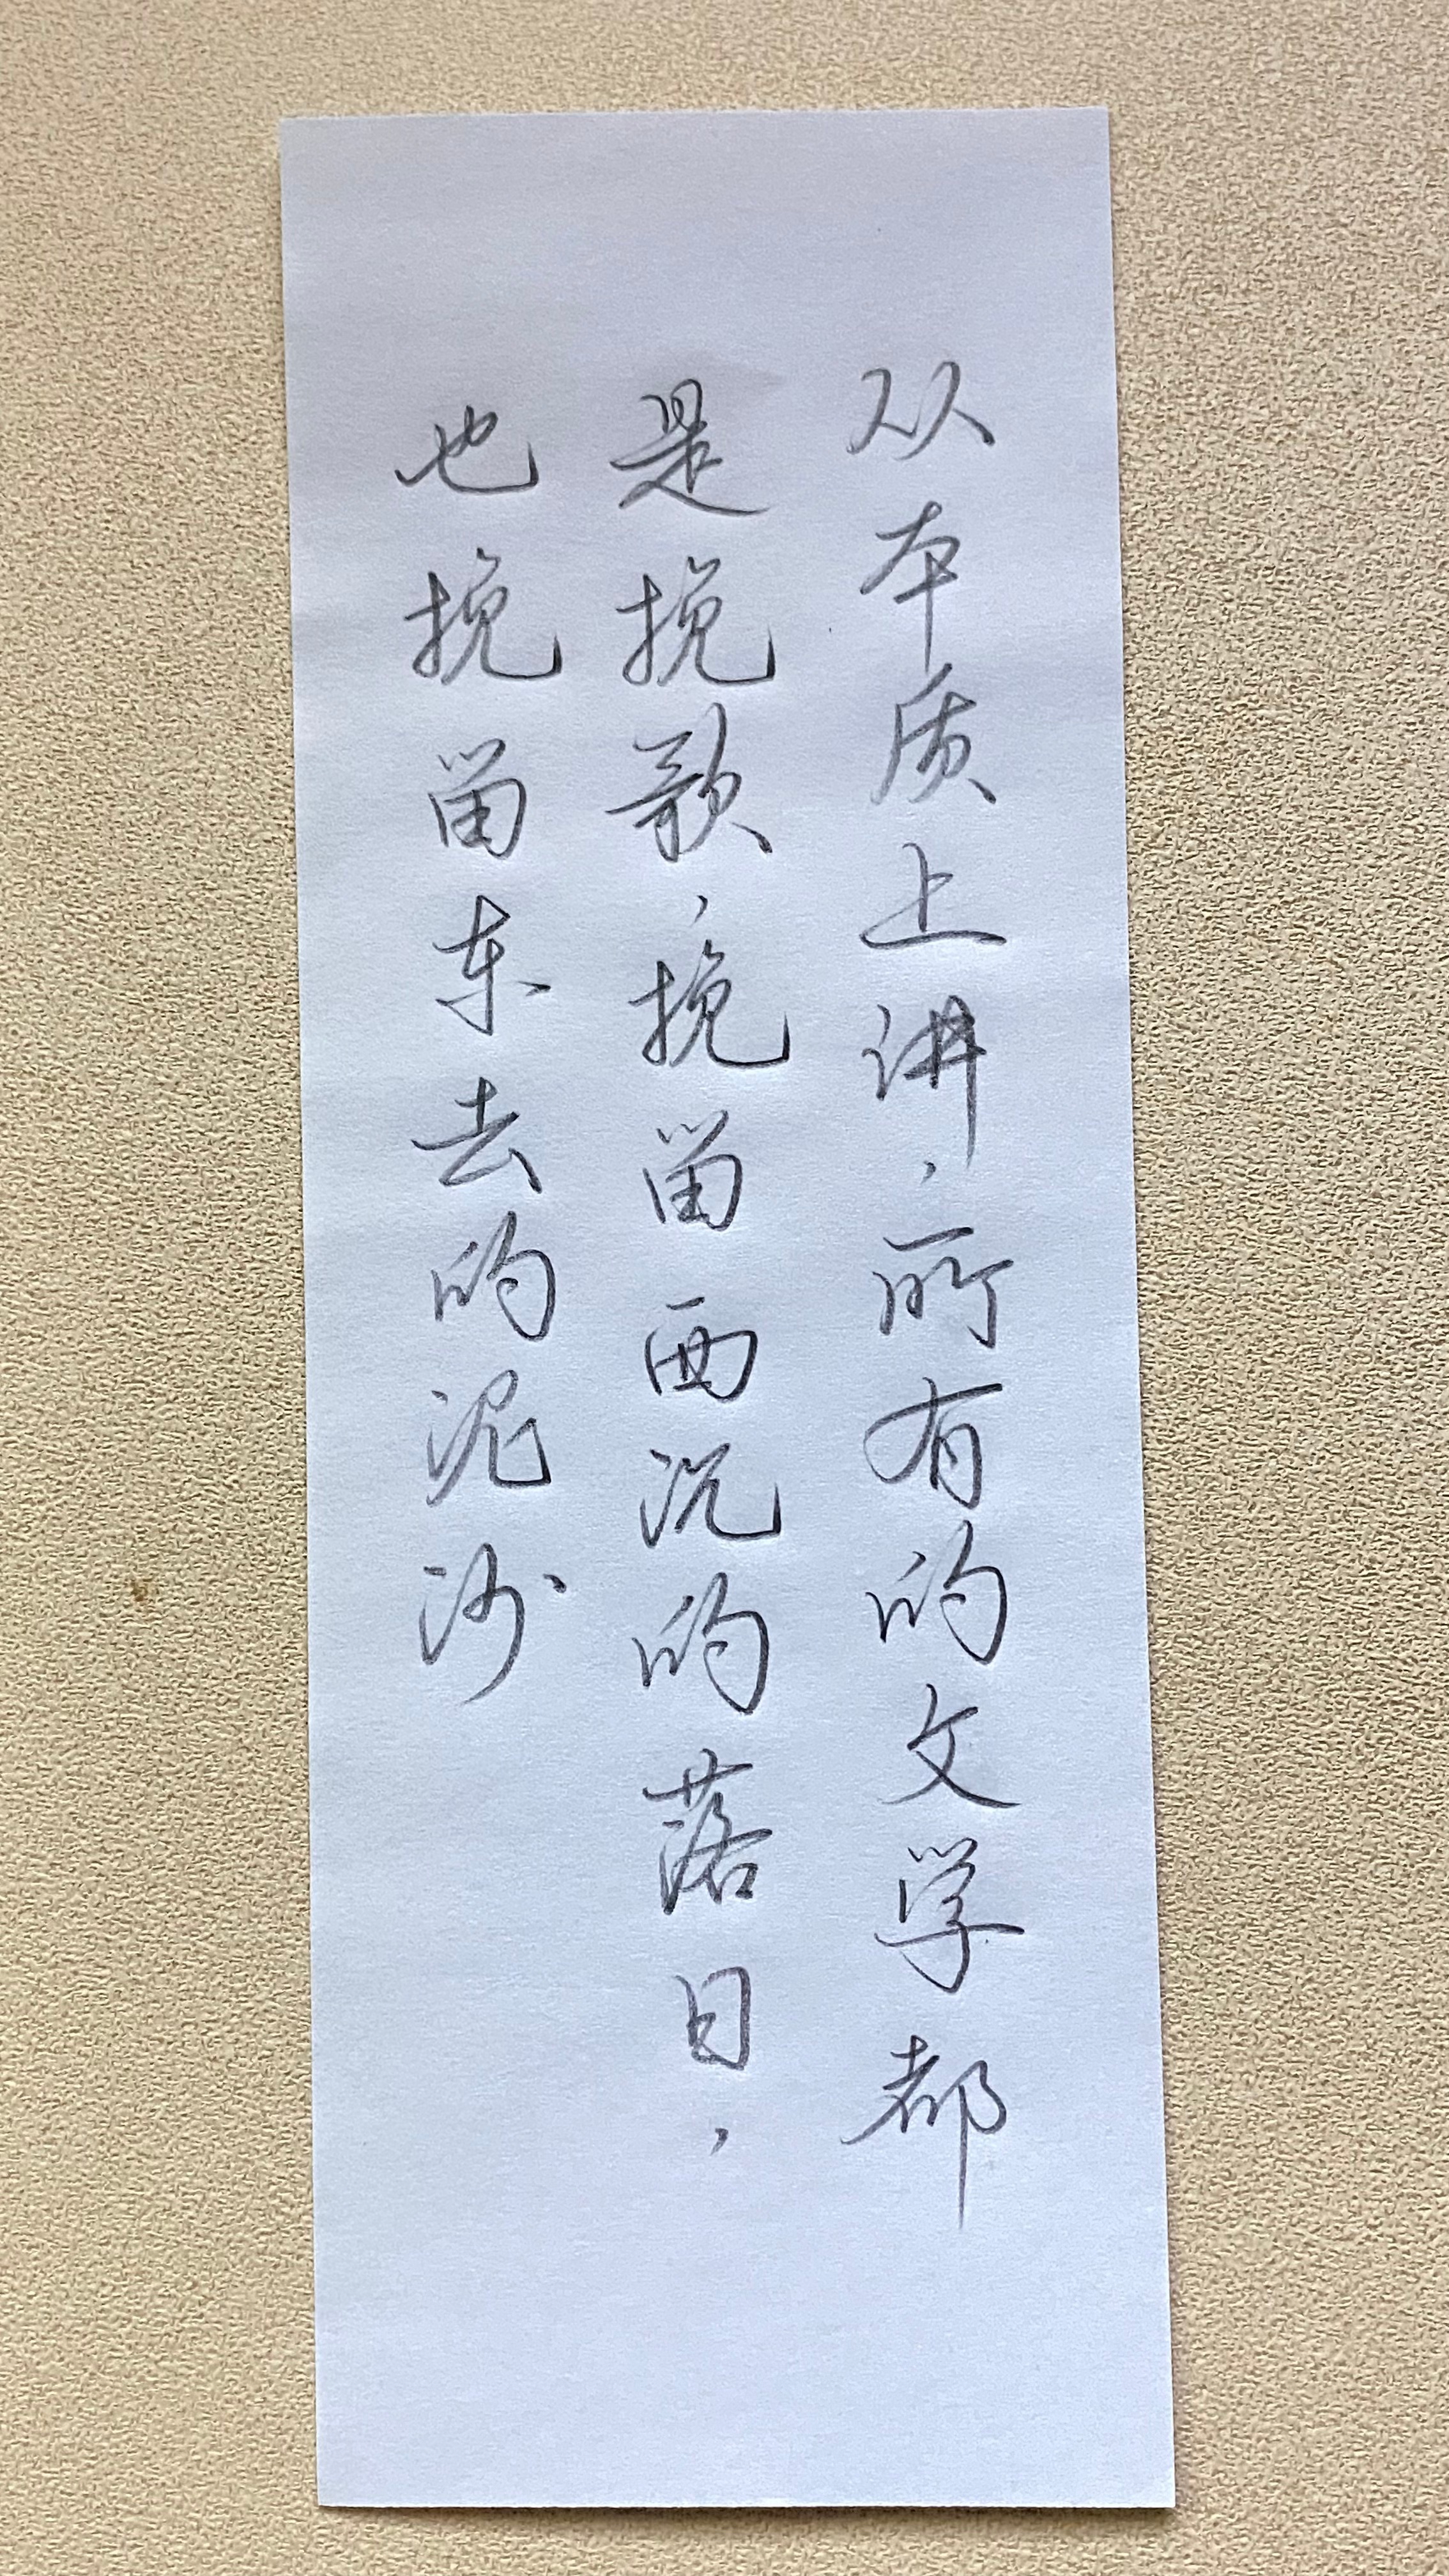 从本质上讲，所有的文学都
是挽歌，挽留西沉的落日，
也挽留东去的泥沙